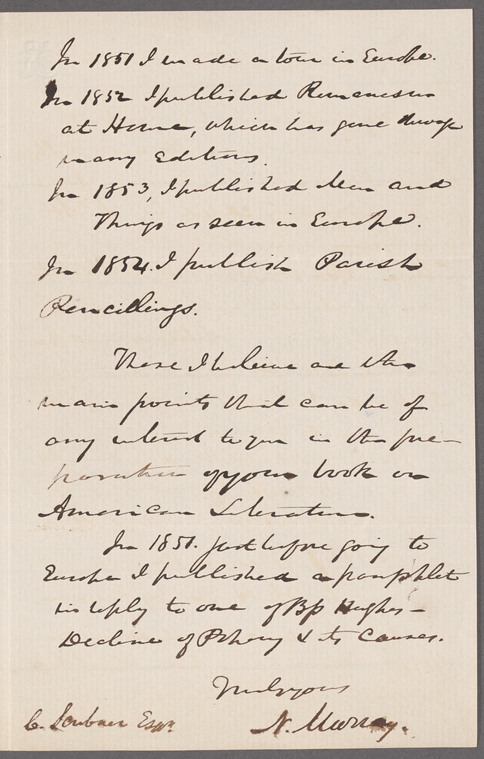 In 1851 I made a tour in Europe.
In 1852 I published Romanism
at Home, which has gone through
many editions.
In 1853, I published Men and
Things as seen in Europe.
In 1854. I publish Parish
Pencillings.
These I believe are the
main points that can be of
any interest to you in the pre-
paration of your book on
American Literature.
In 1851. just before going to
Europe I published a pamphlet
in reply to one of Bp Hughes -
Decline of Popery & its Causes.
Truly yours
N. Murray.
C. Scribner Esqr.